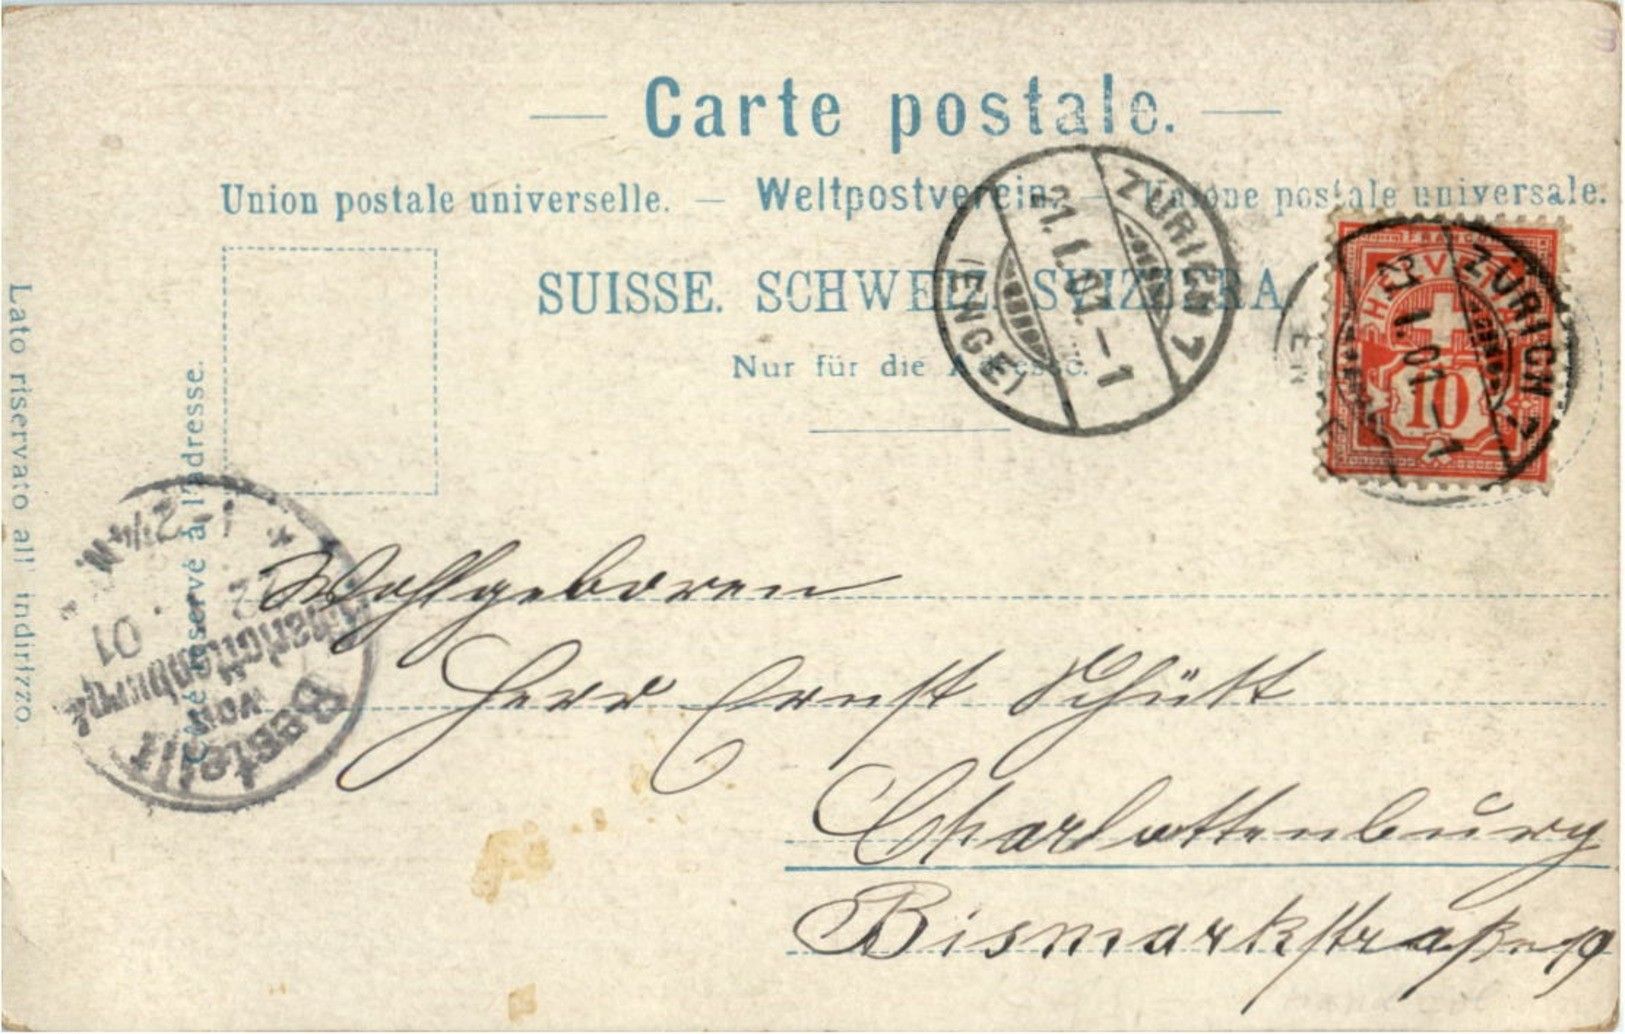 Carte postale.
Union postale universelle. — Weltpostverein. — Unione postale universale.
SUISSE. SCHWEIZ. SVIZZERA.
Nur für die Adresse.
Lato riservato all' indirizzo.
Côté réservé à l'adresse.
ZÜRICH 7
21.I.01.–1
(ENGE)
FRANCO
HELVETIA
10
ZÜRICH 7
21.I.01.–1
Bestellt
vom
Charlottenburg
01
1–2¼N.
Wohlgeboren
Herr Ernst Schütt
Charlottenburg
Bismarkstraße 19